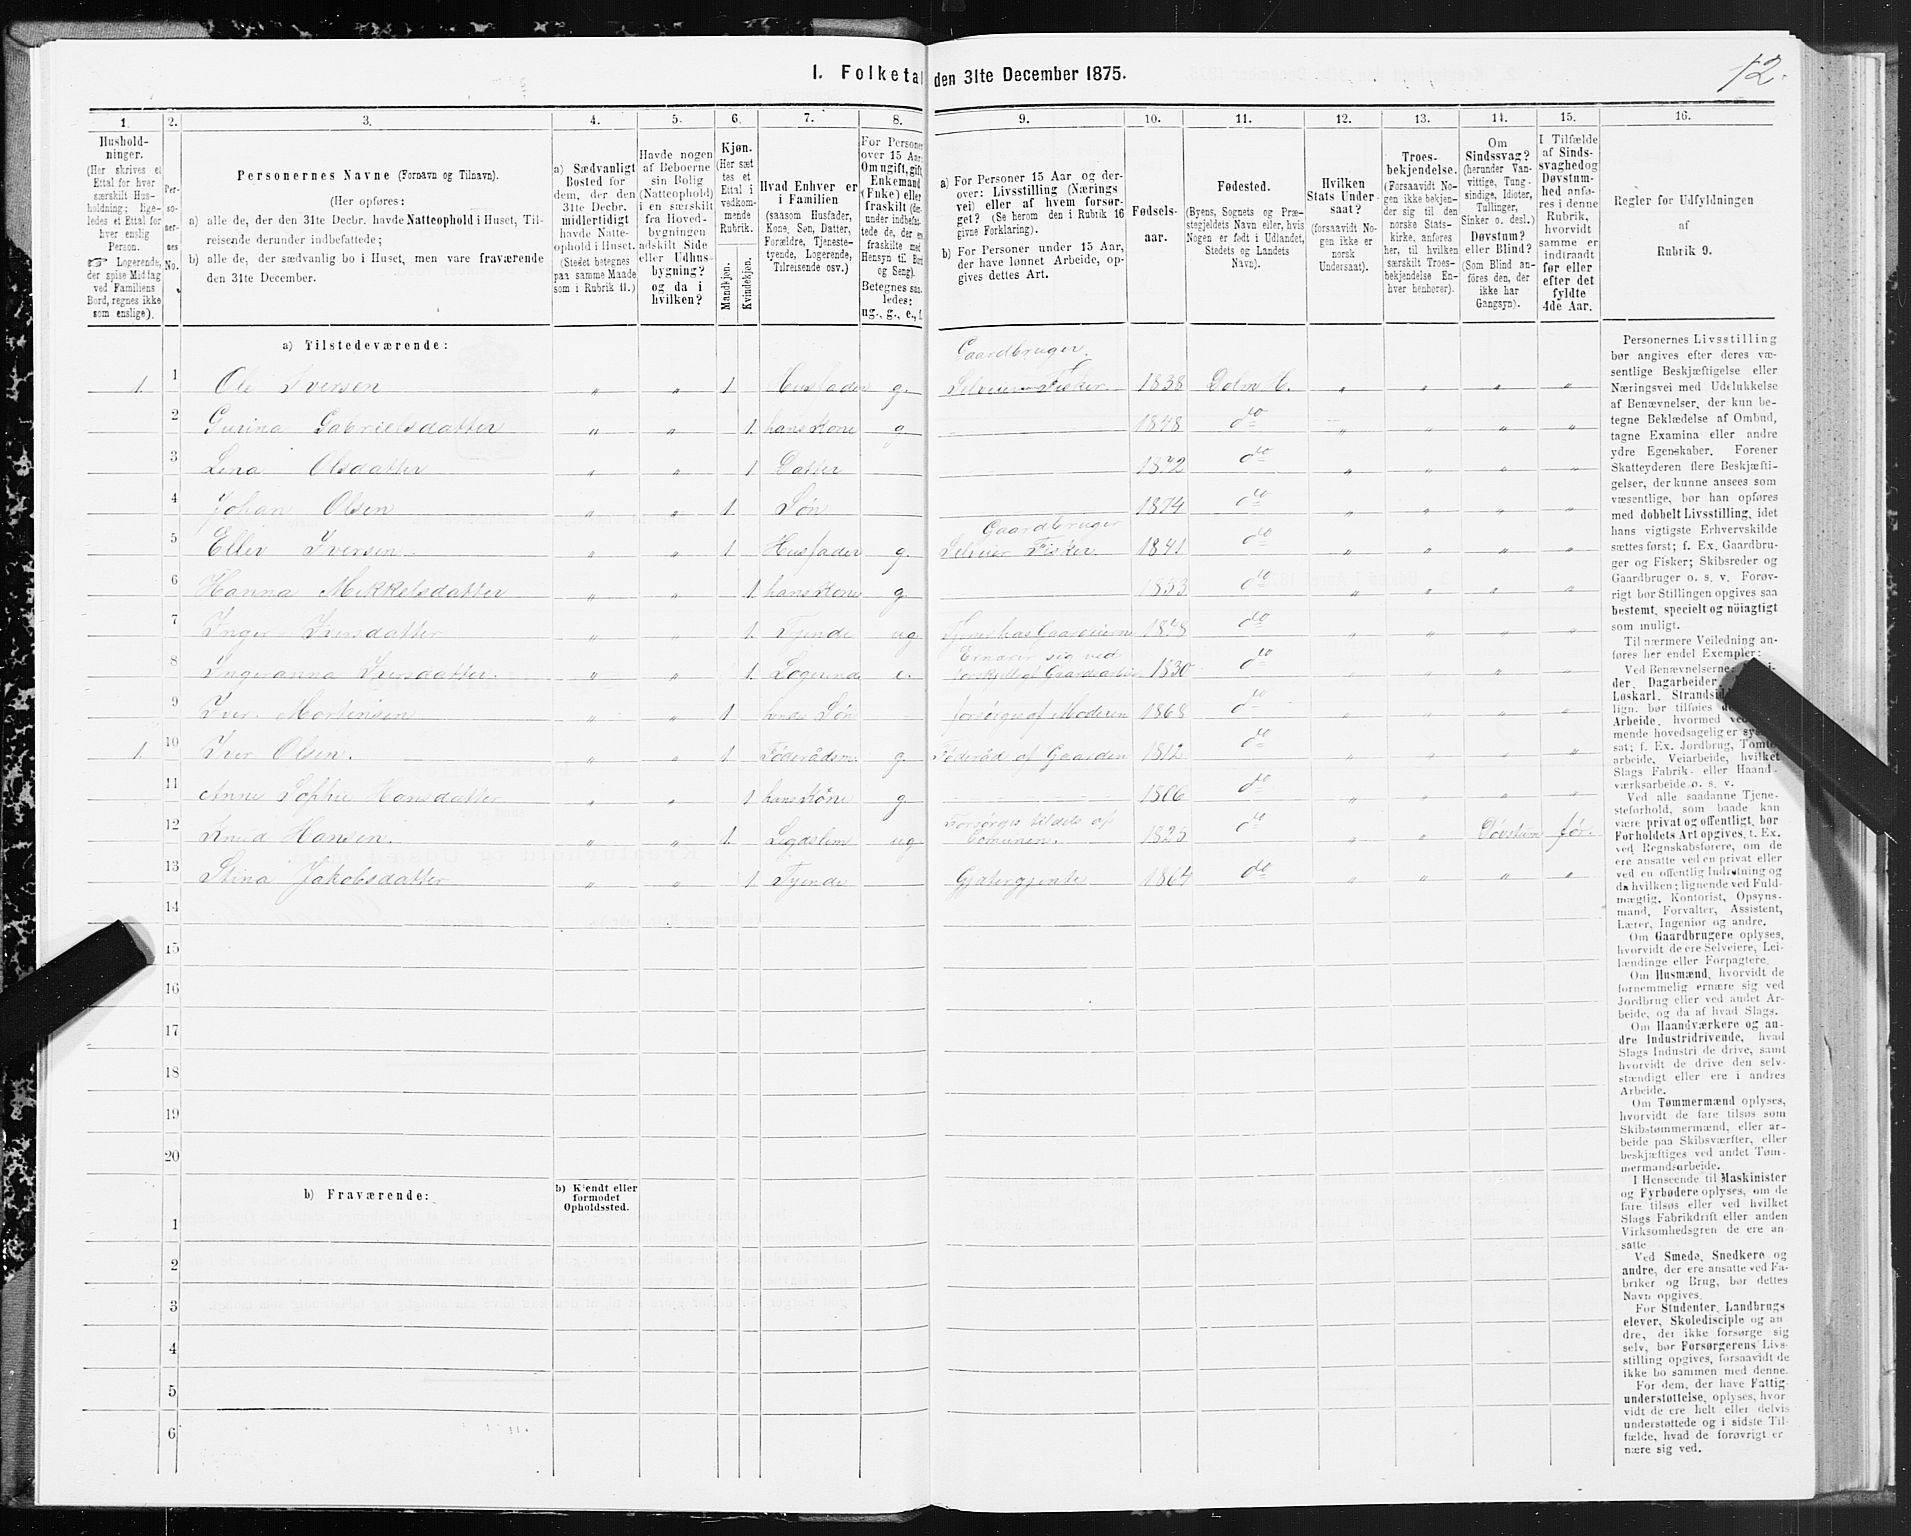 12.
I. Folketal den 31te December 1875.
1. 2. 3. 4. 5. 6. 7. 8. 9. 10. 11. 12. 13. 14. 15. 16.
Hushold-
ninger.
(Her skrives et
Ettal for hver
særskilt Hus-
holdning; lige-
ledes et Ettal for
hver enslig
Person.
☞ Logerende,
der spise Middag
ved Familiens
Bord, regnes ikke
som enslige).
Per-
so-
ner-
nes
No.
Personernes Navne (Fornavn og Tilnavn).
(Her opføres:
a) alle de, der den 31te Decbr. havde Natteophold i Huset, Til-
reisende derunder indbefattede;
b) alle de, der sædvanlig bo i Huset, men vare fraværende
den 31te December.
a) Sædvanligt
Bosted for
dem, der den
31te Decbr.
midlertidigt
havde Natte-
ophold i Huset.
(Stedet betegnes
paa samme Maade
som i Rubrik 11.)
Havde nogen
af Beboerne
sin Bolig
(Natteophold)
i en særskilt
fra Hoved-
bygningen
adskilt Side
eller Udhus-
bygning?
og da i
hvilken?
Kjøn.
(Her sæt
tes et
Ettal i
vedkom-
mende
Rubrik.
Mandkjøn.
Kvindekjøn.
Hvad Enhver er
i Familien
(saasom Husfader,
Kone, Søn, Datter,
Forældre, Tjeneste-
tyende, Logerende,
Tilreisende osv.)
For Personer
over 15 Aar:
Om ugift, gift,
Enkemand
(Enke) eller
fraskilt
Betegnes saa-
ledes:
ug., g., e., f.
a) For Personer 15 Aar og der-
over: Livsstilling (Nærings
vei) eller af hvem forsør-
get? (Se herom den i Rubrik 16
givne Forklaring).
b) For Personer under 15 Aar,
der have lønnet Arbeide, op-
gives dettes Art.
Fødsels-
aar.
Fødested.
(Byens, Sognets og Præ-
stegjeldets Navn eller, hvis
Nogen er født i Udlandet,
Stedets og Landets
Navn).
Hvilken
Stats Under-
saat?
(forsaavidt No-
gen ikke er
norsk
Undersaat).
Troes-
bekjendelse.
(Forsaavidt No-
gen ikke bekjen-
der sig til den
norske Stats-
kirke, anføres
her, til hvilken
særskilt Troes-
bekjendelse En-
hver henhører).
Om
Sindssvag?
(herunder Van-
vittige, Tung-
sindige, Idioter,
Tullinger,
Sinker o. desl.)
Døvstum?
eller Blind?
(Som Blind an-
føres den, der
ikke har
Gangsyn).
I Tilfælde
af Sinds-
svaghed og
Døvstum-
hed anfø-
res i denne
Rubrik,
hvorvidt
samme er
indtraadt
før eller
efter det
fyldte
4de Aar.
Regler for Udfyldningen
af
Rubrik 9.
a) Tilstedeværende:
Gaardbruger.
1 1 Ole Iversen " " 1 Husfader g. Selveier Fisker. 1838 Dolm H. " " " "
2 Gurina Gabrielsdatter " " 1. hans Kone g 1848 do " " " "
3 Lina Olsdatter " " 1 Datter 1872 do " " " "
4 Johan Olsen " " 1. Søn 1874 do " " " "
Gaardbruger
5 Eller Iversen " " 1 Husfader g. Selveier Fisker 1841 do " " " "
6 Hanna Mikkelsdatter " " 1. hans Kone g. 1853 do " " " "
7 Inger Iversdatter " " 1. Tjende ug. 1848 do " " " "
Ernærer sig ved
8 Ingeranna Iversdatter. " " 1. Logerende e. 1830 do " " " "
9 Iver Mortensen " " 1 hendes Søn forsørges af Moderen 1868 do " " " "
1. 10 Iver Olsen. " " 1 Föderådsm. g. Föderåd af Gaarden 1812 do " " " "
11 Anne Sophie Hansdatter " " 1 hans Kone g 1806 do " " " "
Forsørges tildels af
12 Knud Hansen. " " 1. Legdslem ug Comunen. 1825 do " " Døvstum før.
13 Stina Jakobsdatter " " 1 Tyende Gjætergjente 1864 do " " " "
14
15
16
17
18
19
20
b) Fraværende:
b) Kjendt eller
formodet
Opholdssted.
1
2
3
4
5
6
Personernes Livsstilling
bør angives efter deres væ-
sentlige Beskjæftigelse eller
Næringsvei med Udelukkelse
af Benævnelser, der kun be-
tegne Beklædelse af Ombud,
tagne Examina eller andre
ydre Egenskaber. Forener
Skatteyderen flere Beskjæfti-
gelser, der kunne ansees som
væsentlige, bør han opføres
med dobbelt Livsstilling, idet
hans vigtigste Erhvervskilde
sættes først; f. Ex. Gaardbru-
ger og Fisker; Skibsreder og
Gaardbruger o. s. v. Forøv-
rigt bør Stillingen opgives saa
bestemt, specielt og nöiagtigt
som muligt.
Til nærmere Veiledning an-
føres her endel Exempler:
Ved Benævnelserne:
der, Dagarbeider,
Løskarl, Strandsid
lign. bør tilføies
Arbeide, hvormed ved
mende hovedsagelig er sys
sat; f. Ex. Jordbrug, Tomte-
arbeide, Veiarbeide, hvilket
Slags Fabrik- eller Haand-
værksarbeide o. s. v.
Ved alle saadanne Tjene-
steforhold, som baade kan
være privat og offentligt, bør
Forholdets Art opgives, t. Ex.
ved Regnskabsførere, om de
ere ansatte ved en privat eller
ved en offentlig Indretning og
da hvilken; lignende ved Fuld-
mægtig, Kontorist, Opsyns-
mand, Forvalter, Assistent,
Lærer, Ingeniør og andre.
Om Gaardbrugere oplyses,
hvorvidt de ere Selveiere, Lei-
lændinge eller Forpagtere.
Om Husmænd, hvorvidt de
fornemmelig ernære sig ved
Jordbrug eller ved andet Ar-
beide, og da af hvad Slags.
Om Haandværkere og an-
dre Industridrivende, hvad
Slags Industri de drive, samt
hvorvidt de drive den selv-
stændigt eller ere i andres
Arbeide.
Om Tømmermænd oplyses,
hvorvidt de fare tilsøs som
Skibstømmermænd, eller ar-
beide paa Skibsværfter, eller
beskjæftiges ved andet Tøm-
mermandsarbeide.
I Henseende til Maskinister
og Fyrbødere oplyses, om de
fare tilsøs eller ved hvilket
Slags Fabrikdrift eller anden
Virksomhedsgren de ere an-
satte
Ved Smede, Snedkere og
andre, der ere ansatte ved Fa-
briker og Brug, bør dettes
Navn opgives.
For Studenter, Landbrugs
elever, Skoledisciple og an-
dre, der ikke forsørge sig
selv, bør Forsørgerens Livs-
stilling opgives, forsaavidt de
ikke bo sammen med denne.
For dem, der have Fattig-
understøttelse, oplyses, hvor-
vidt de ere helt eller delvis
understøttede og i sidste Til-
fælde, hvad de forøvrigt er
nære sig ved.